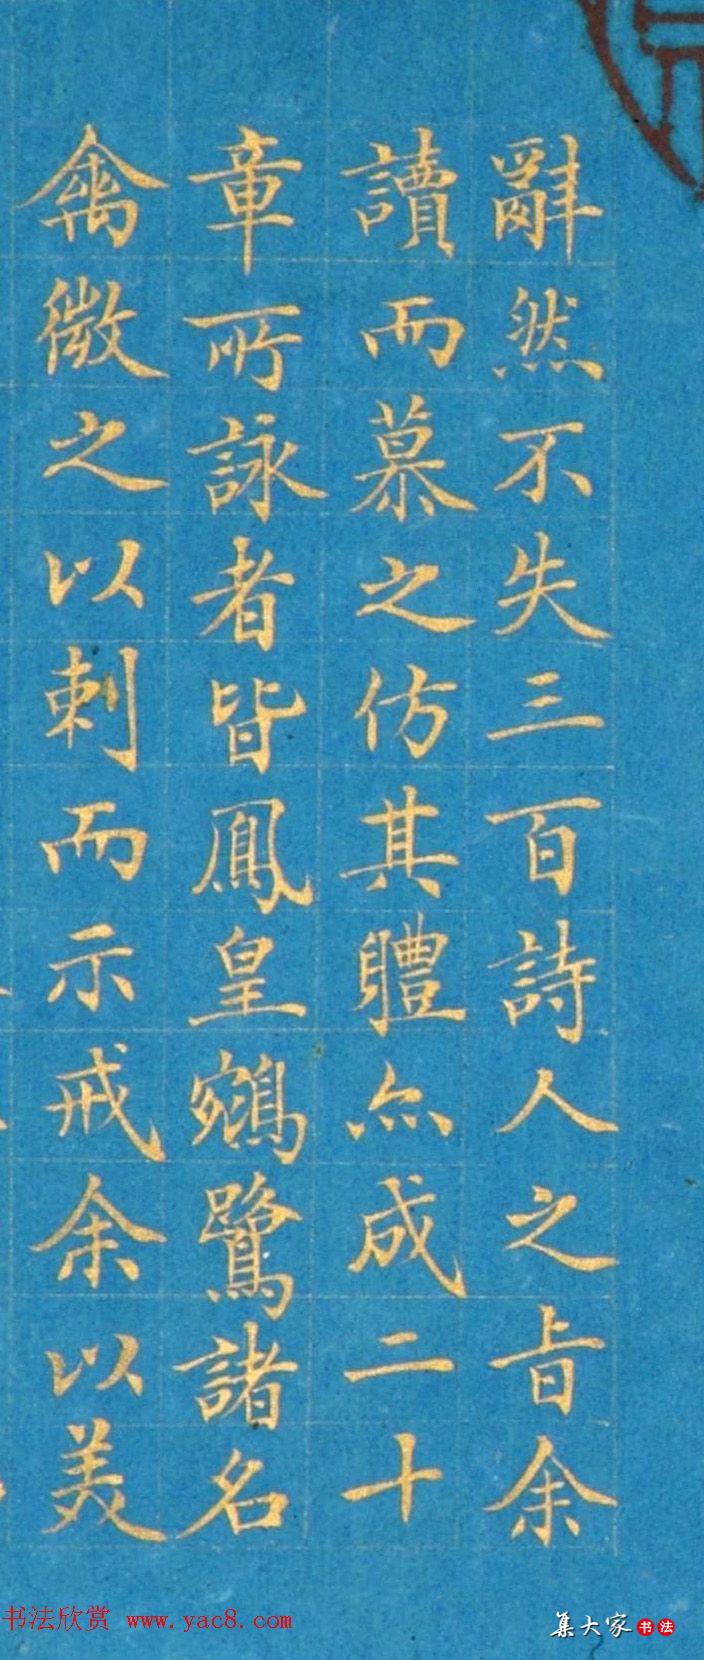 辭然不失三百詩人之旨余
讀而慕之仿其體亦成二十
章所詠者皆鳳皇鵷鷺諸名
禽微之以刺而示戒余以美
书法欣赏 www.yac8.com
集大家书法